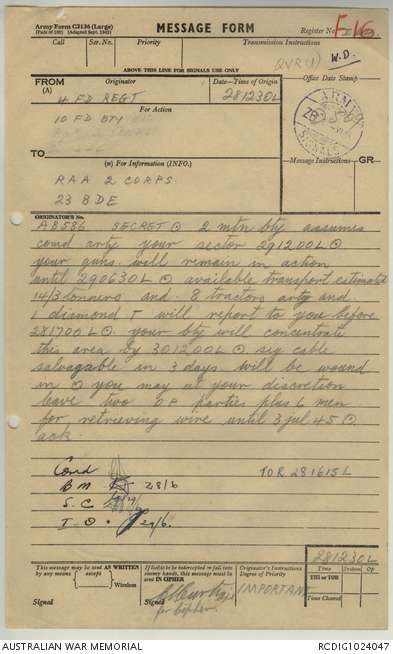 Army Form C2136 (Large)
(Pads of 100) (Adapted Sept. 1942)
MESSAGE FORM
Register No.
F16
Call
Ser. No.
Priority
Transmission Instructions
QVR(1)
W.D.
ABOVE THIS LINE FOR SIGNALS USE ONLY
FROM
(A)
Originator
Date-Time of Origin
Office Date Stamp
4 FD REGT
281230L
For Action
10 FD BTY
ARMY
SIGNALS
TO
(W) For Information (INFO.)
Message Instructions
GR
RAA 2 CORPS
23 BDE
ORIGINATOR'S No.
AB586 SECRET ⊙ 2 mtn bty assumes
comd arty your sector 291200L ⊙
your guns will remain in action
until 290630L ⊙ available transport estimated
14/3 tonners and 8 tractors arty and
1 diamond T will report to you before
281700L ⊙ your bty will concentrate
this area by 301200L ⊙ sig cable
salvagable in 3 days will be wound
in ⊙ you may at your discretion
leave two OP parties plus 6 men
for retrieving wire until 3 jul 45 ⊙
ack
Comd
TOR 281615L
B M 28/6
S. C
I O 29/6.
281230L
This message may be sent AS WRITTEN
by any means except Wireless
If liable to be intercepted or fall into
enemy hands, this message must be
sent IN CIPHER
Originator's Instructions
Degree of Priority
Time
System
Op
THI or TOR
IMPORTANT
Time Cleared
Signed
Signed
for Cipher
AUSTRALIAN WAR MEMORIAL
RCDIG1024047